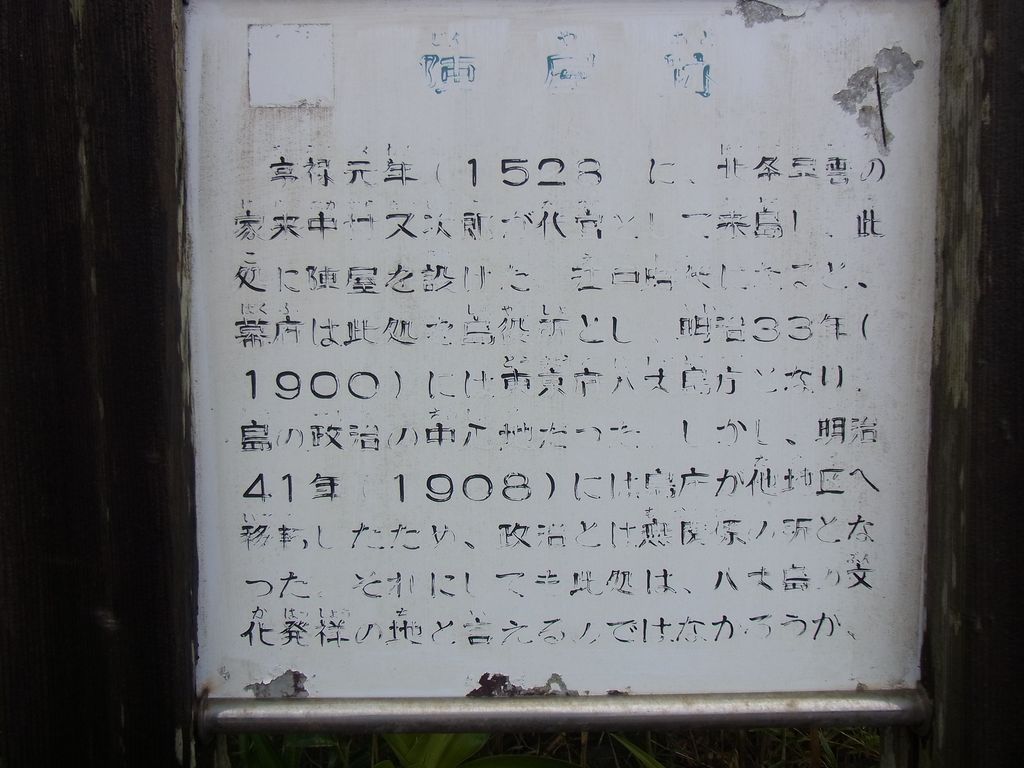 陣屋
享禄元年(1528)に、北条早雲の
家来中村又次郎が代官として来島し、此
処に陣屋を設けた。江戸時代になると、
幕府は此処を島役所とし、明治33年(
1900)には東京府八丈島庁となり、
島の政治の中心地だった。しかし、明治
41年(1908)には島庁が他地区へ
移転したため、政治とは無関係の所とな
った。それにしても此処は、八丈島の文
化発祥の地と言えるのではなかろうか。